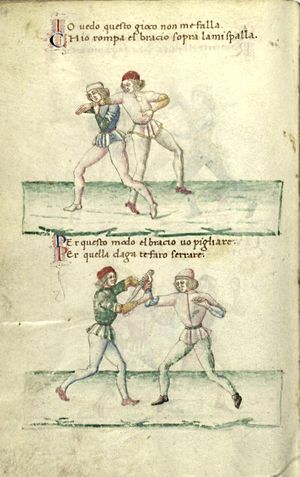 IO vedo questo gioco non me falla.
CHio rompa el bracio sopra la mi spalla.
PEr questo modo el bracio uo pigliare.
PEr quella daga te faro serrare.